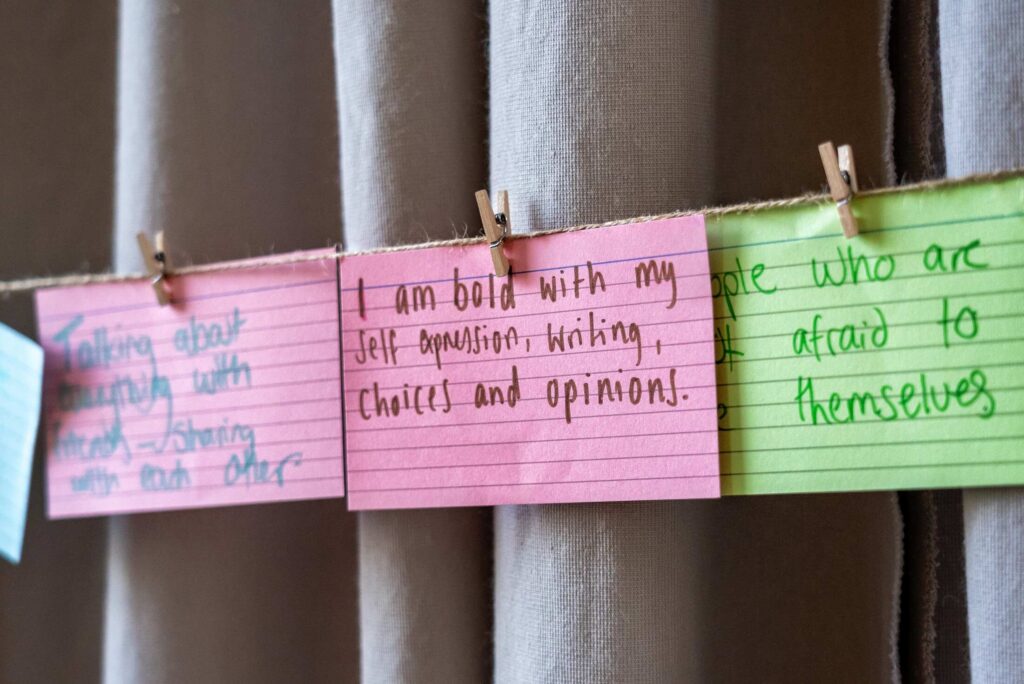 Talking about
everything with
friends - Sharing
with each other
I am bold with my
self expression, writing,
choices and opinions.
who are
afraid to
themselves